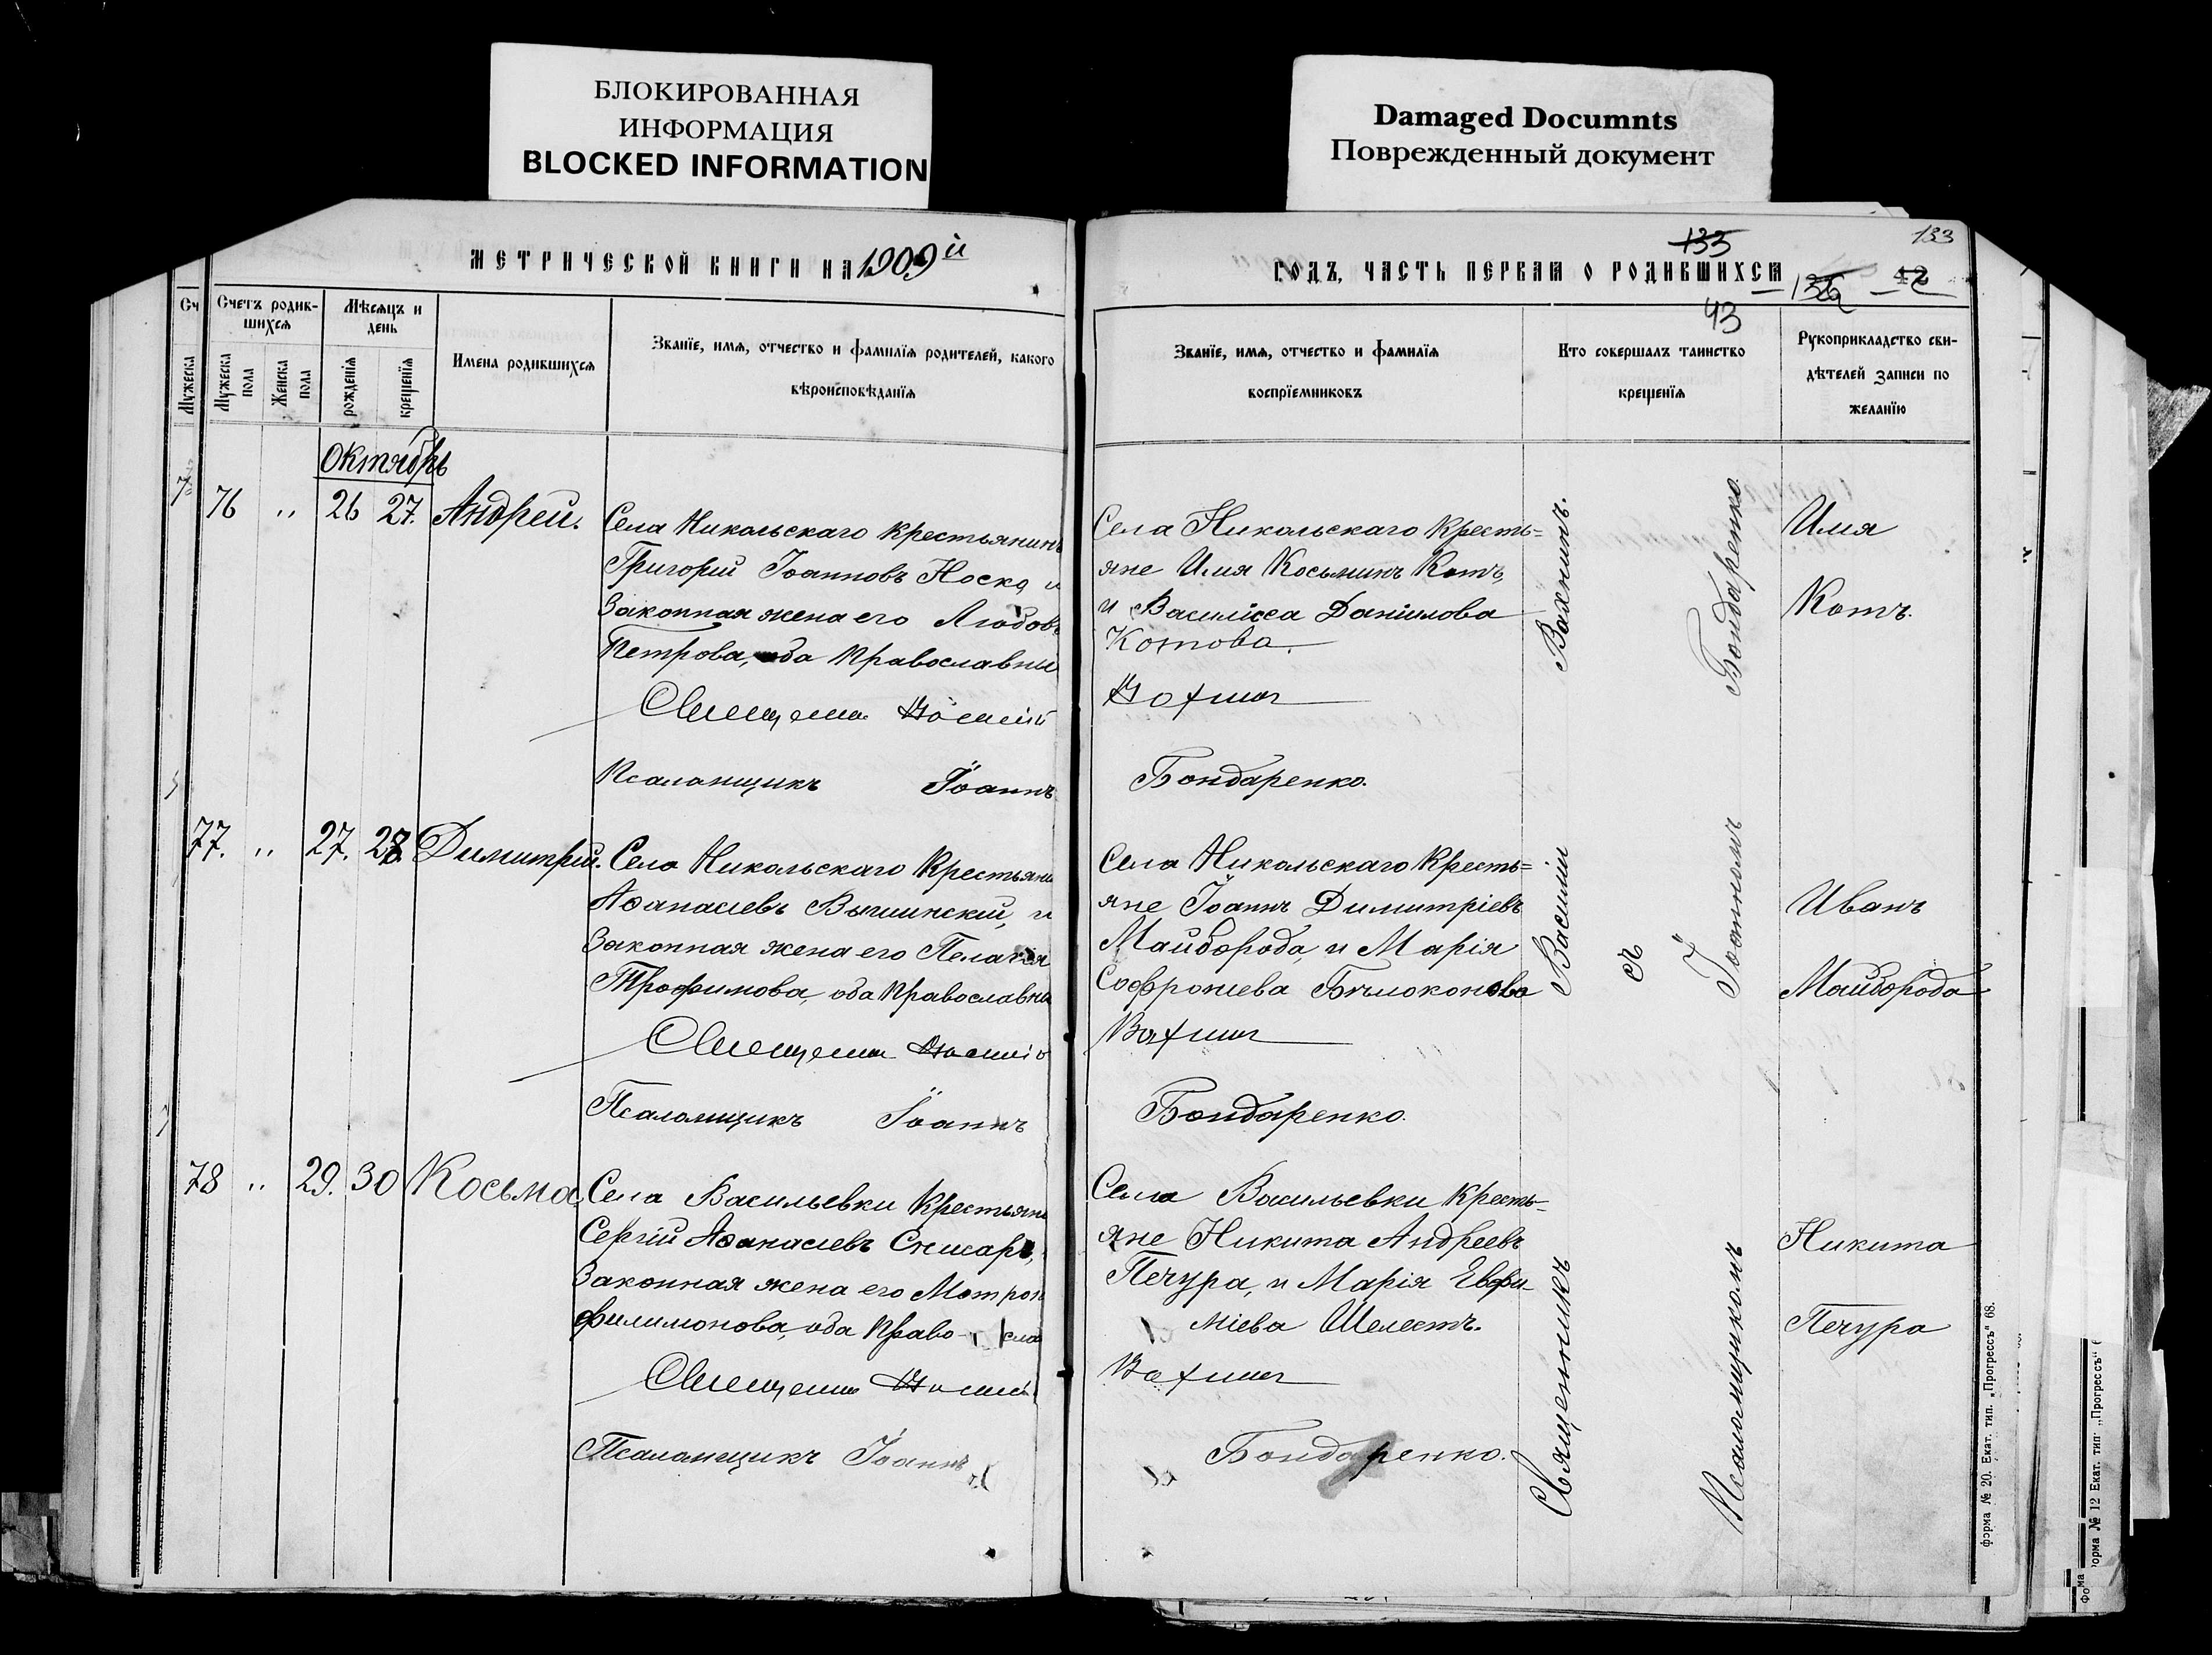 БЛОКИРОВАННАЯ
ИНФОРМАЦИЯ
BLOCKED INFORMATION
Damaged Documnts
Поврежденный документ
МЕТРИЧЕСКОЙ КНИГИ НА 1909й
Сч
Мужеска
Счетъ родив-
шихся
Мужеска
пола
Женска
пола
Мѣсяцъ и
день
рожденія
крещенія
Имена родившихся
Званіе, имя, отчество и фамилія родителей, какого
вѣроисповѣданія
Октябрь
76 " 26 27. Андрей.
Села Никольскаго крестьянинъ
Григорій Іоанновъ Носко и
Законная жена его Любовь
Петрова, оба Православны
Василій
Псаломщикъ Іоаннъ
77. " 27. 28. Димитрій.
Села Никольскаго Крестьяни
Аѳанасіевъ Вышинскій, и
Законная жена его Пелагія
Трофимова, оба Православны
Псаломщикъ Іоаннъ
78 " 29. 30 Косьма.
Села Васильевки Крестьяни
Сергій Аѳанасіевъ
Законная жена его Матрон
Филимонова, оба Право- сла
Псаломщикъ Іоаннъ
133
133
ГОДЪ, ЧАСТЬ ПЕРВАЯ О РОДИВШИХСЯ
42
43
Званіе, имя, отчество и фамилія
воспріемниковъ
Кто совершалъ таинство
крещенія
Рукоприкладство сви-
дѣтелей записи по
желанію
Села Никольскаго Кресть=
яне Илія Косьминъ Котъ,
и Василисса Даніилова
Котова.
Вахнинъ
Бондаренко.
Илія
Котъ.
Села Никольскаго Кресть=
яне Іоаннъ Димитріевъ
Майборода, и Марія
Софроніева Бѣлоконова
Вахнинъ
Бондаренко.
Иванъ
Майборода
Села Васильевки Кресть-
яне Никита Андреевъ
Печура, и Марія Евфи-
міева Шелестъ.
Вахнинъ
Бондаренко.
Никита
Печура
Священникъ Василій Вахнинъ.
съ
Псаломщикомъ Іоанномъ Бондаренко.
форма № 20. Екат. тип. „Прогрессъ" 68.
форма № 12 Екат. тип. „Прогрессъ"